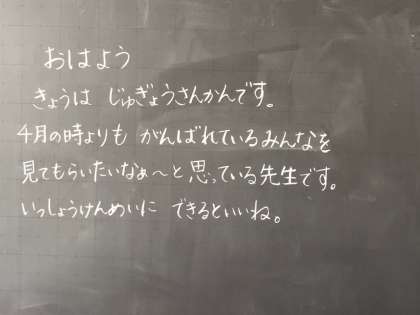 おはよう
きょうは じゅぎょうさんかんです。
4月の時よりも がんばれているみんなを
見てもらいたいなぁ〜と思っている先生です。
いっしょうけんめいに できるといいね。